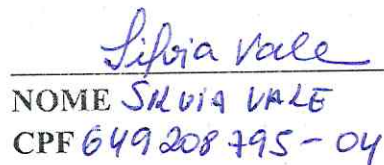 Silvia Vale
NOME SILVIA VALE
CPF 649208795-04